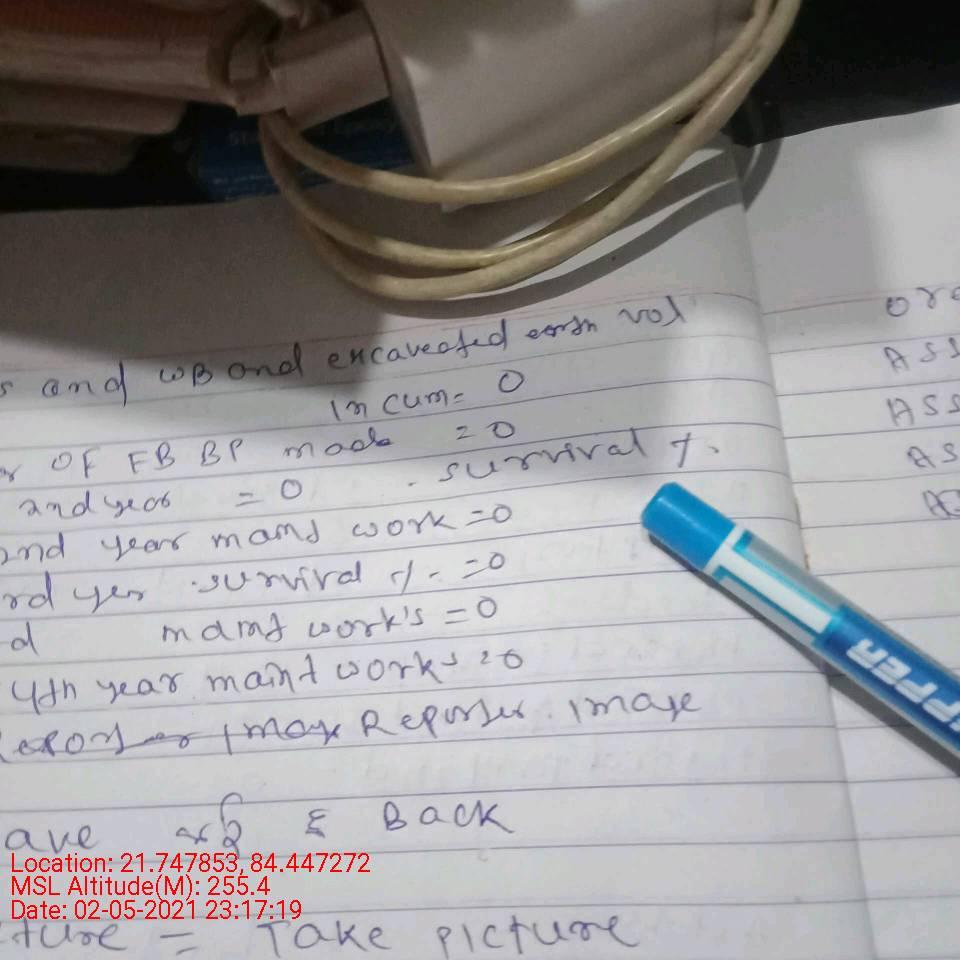 s and WB and excaveated earth vol
in cum= 0
OF FB BP made = 0
2nd year = 0 . survival %.
2nd year maint work = 0
rd yer survival %. = 0
d maint work's = 0
4th year maint works = 0
Image Reporter Image
ave करि & Back
ture = Take picture
ASS
ASS
AS
Location: 21.747853, 84.447272
MSL Altitude(M): 255.4
Date: 02-05-2021 23:17:19